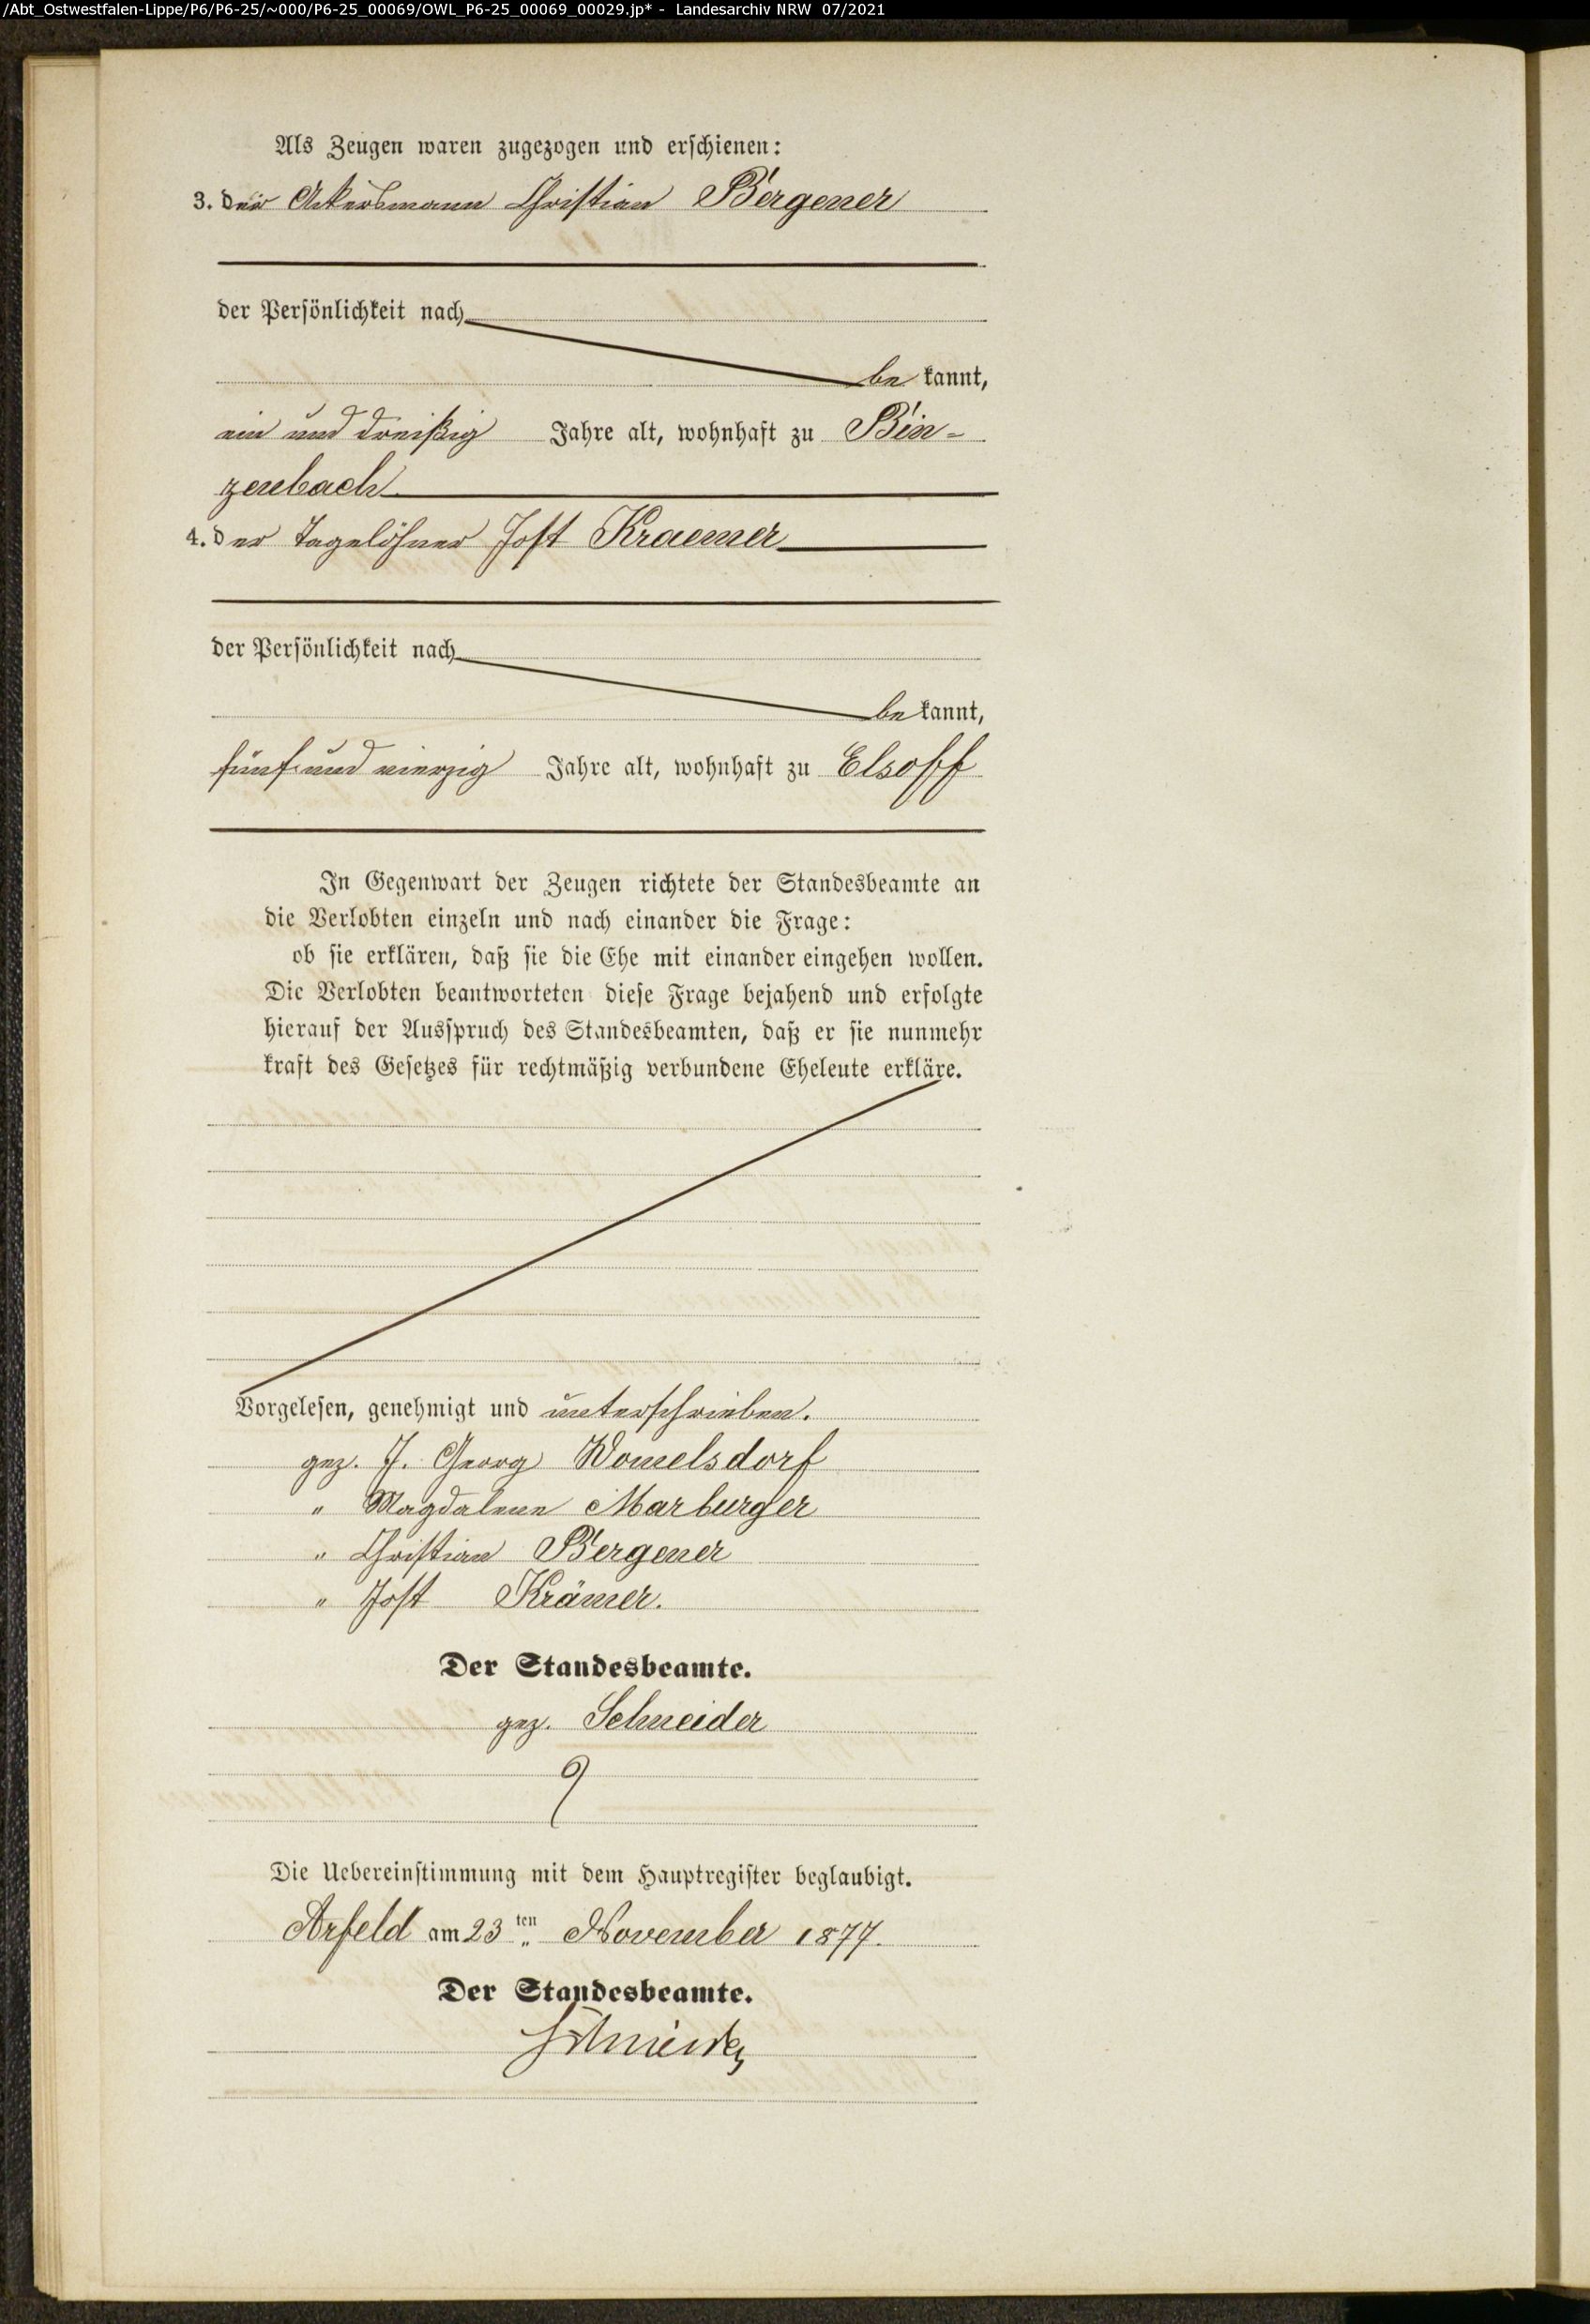 /Abt_Ostwestfalen-Lippe/P6/P6-25/~000/P6-25_00069/OWL_P6-25_00069_00029.jp* - Landesarchiv NRW 07/2021
Als Zeugen waren zugezogen und erschienen:
3. der Ackersmann Christian Bergener
der Persönlichkeit nach
be kannt,
ein und dreißig Jahre alt, wohnhaft zu Bin-
zenbach
4. der Tagelöhner Jost Kraemer
der Persönlichkeit nach
be kannt,
fünf und vierzig Jahre alt, wohnhaft zu Elsoff
In Gegenwart der Zeugen richtete der Standesbeamte an
die Verlobten einzeln und nach einander die Frage:
ob sie erklären, daß sie die Ehe mit einander eingehen wollen.
Die Verlobten beantworteten diese Frage bejahend und erfolgte
hierauf der Ausspruch des Standesbeamten, daß er sie nunmehr
kraft des Gesetzes für rechtmäßig verbundene Eheleute erkläre.
Vorgelesen, genehmigt und unterschrieben.
gez. J. Georg Womelsdorf
" Magdalene Marburger
" Christian Bergener
" Jost Krämer.
Der Standesbeamte.
gez. Schneider
Die Uebereinstimmung mit dem Hauptregister beglaubigt.
Arfeld am 23 ten November 1877.
Der Standesbeamte.
Schneider